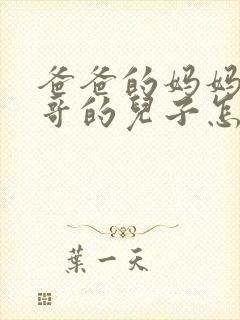 爸爸的妈妈
哥的兒子怎
葉一天